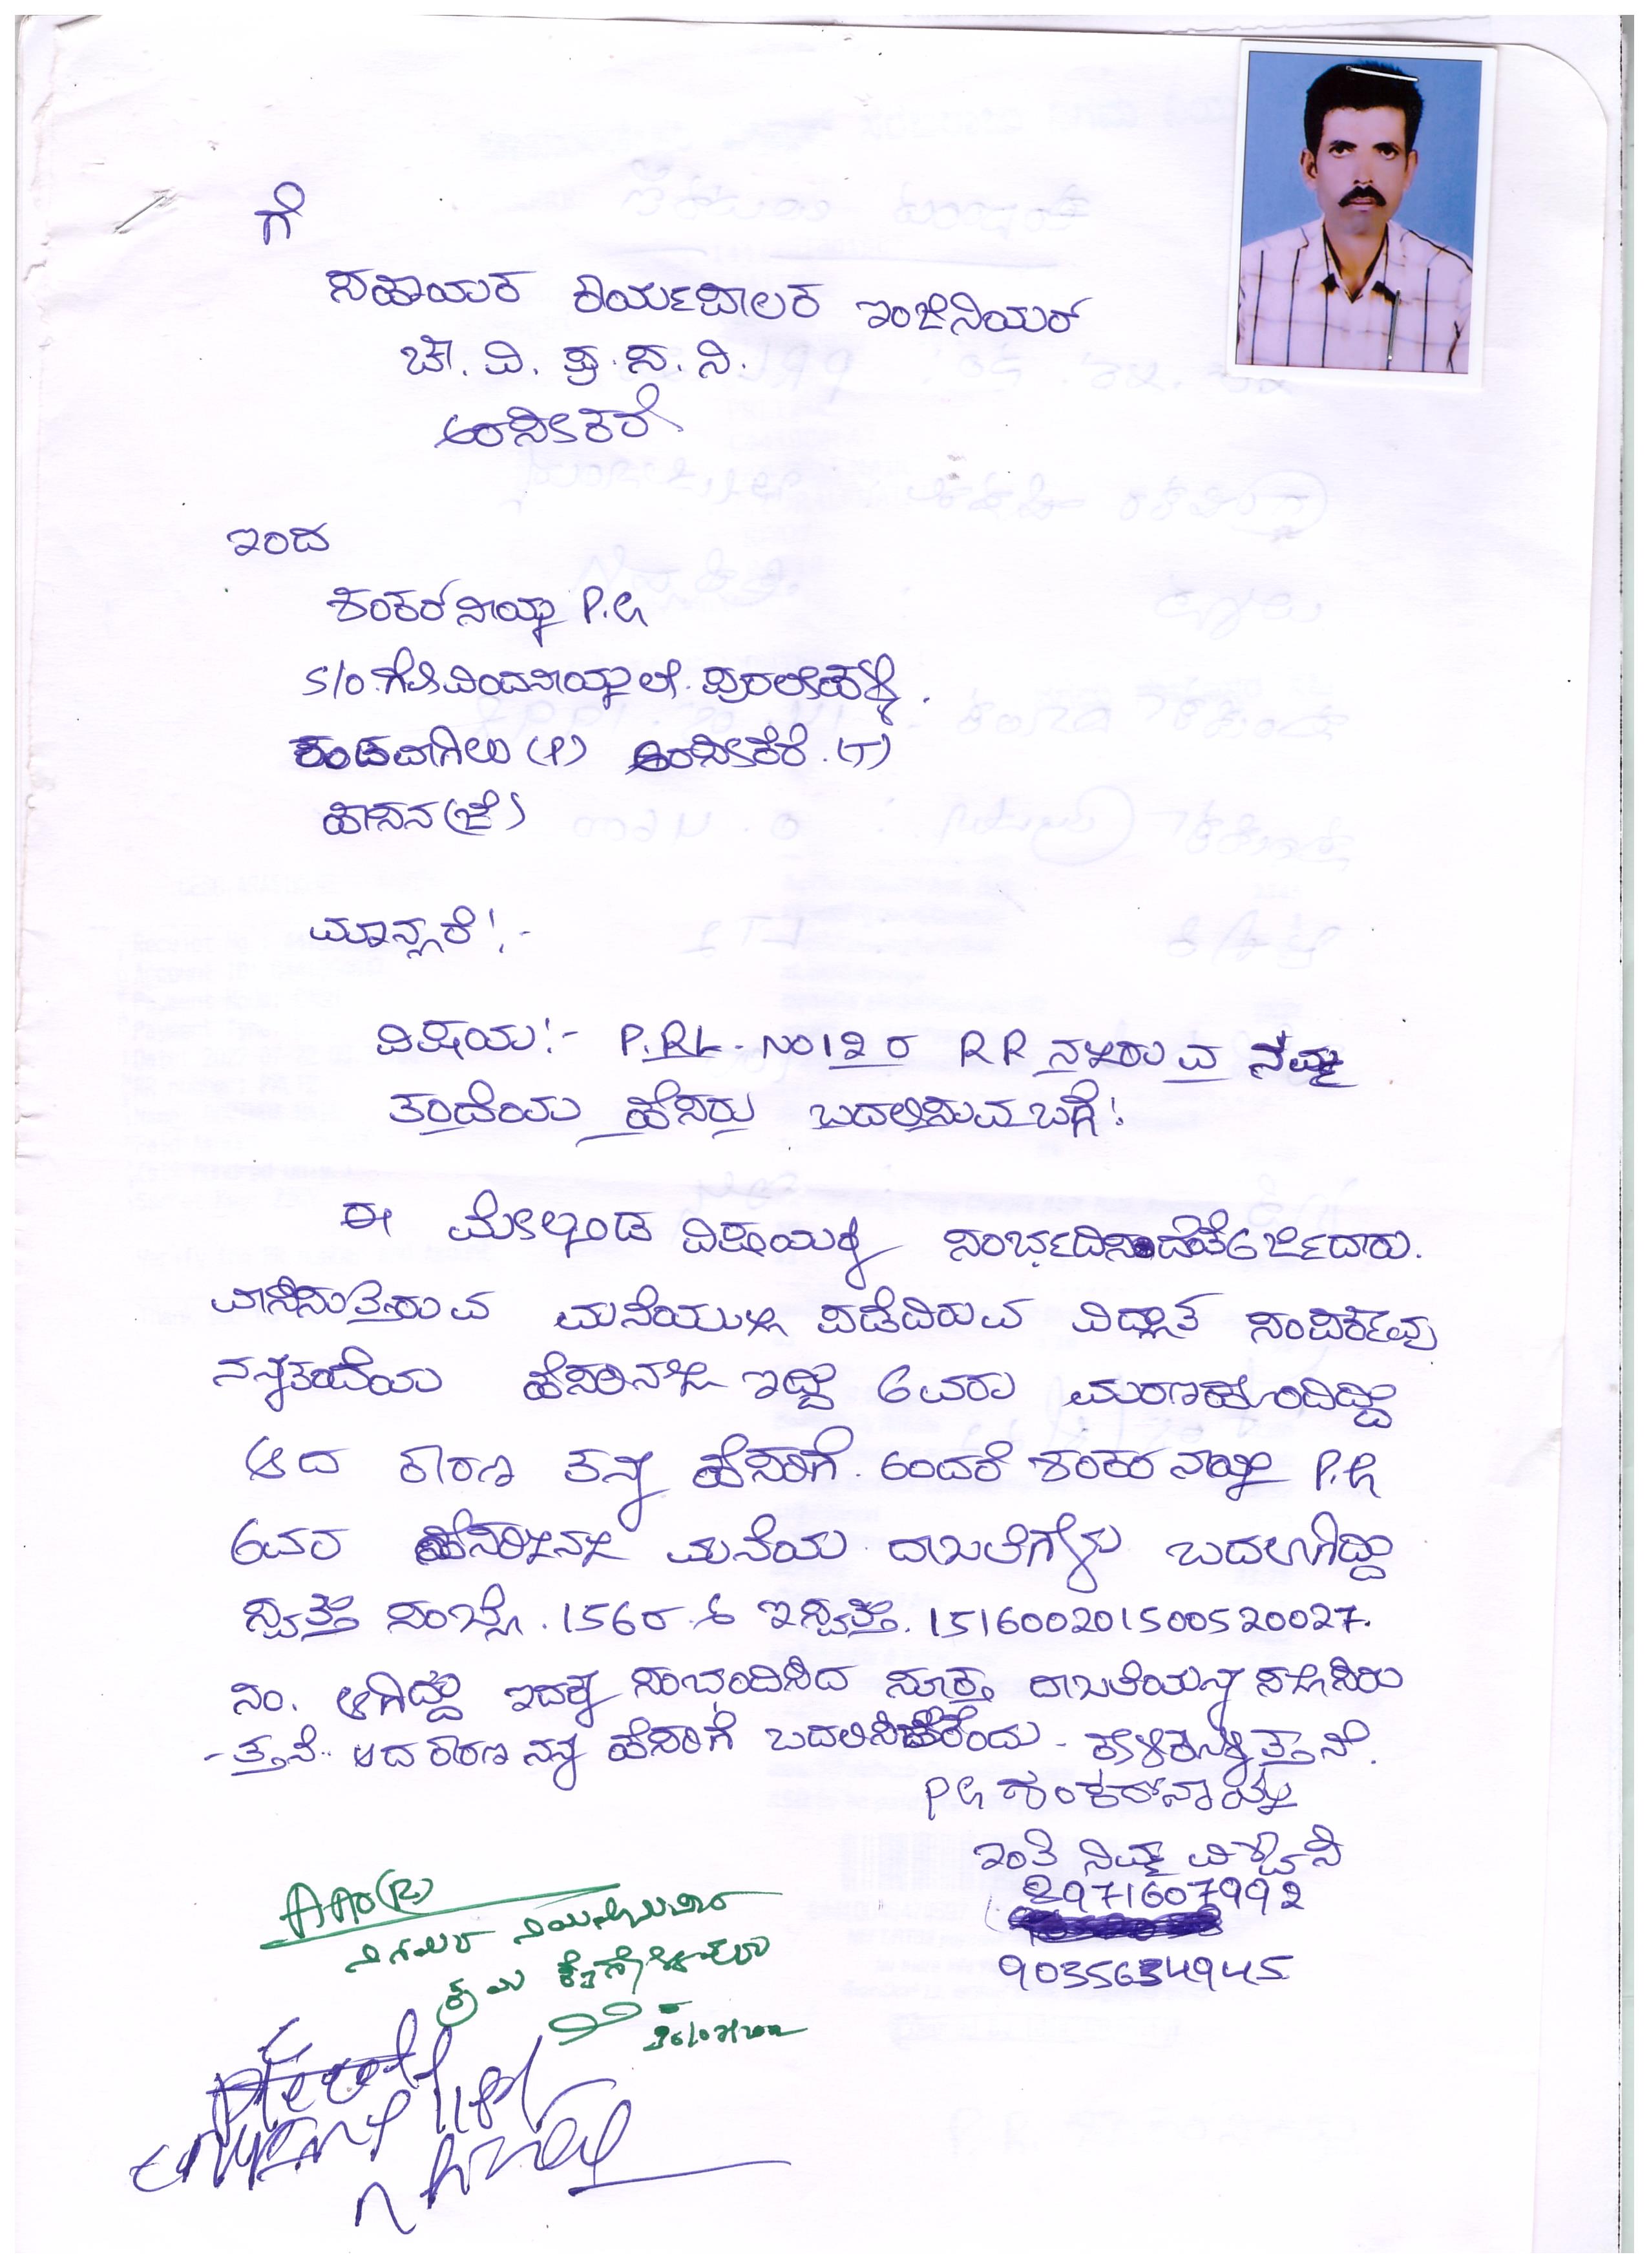 ಗೆ
ಸಹಾಯಕ ಕಾರ್ಯಪಾಲಕ ಇಂಜಿನಿಯರ್
ಚಾ. ವಿ. ಪ್ರ. ಸ. ನಿ.
ಅರಸೀಕೆರೆ
ಇಂದ
ಶಂಕರನಾಯ್ಕ P.G
S/O. ಗೋವಿಂದನಾಯ್ಕ ಲೇ. ಪುರಲೇಹಳ್ಳಿ.
ಕಂಡವಾಗಿಲು (P) ಅರಸೀಕೆರೆ. (T)
ಹಾಸನ (ಜಿ)
ಮಾನ್ಯರೆ!,-
ವಿಷಯ:- P.RL. NO 129 RR ನಲ್ಲಿರುವ ನಮ್ಮ
ತಂದೆಯ ಹೆಸರು ಬದಲಿಸುವ ಬಗ್ಗೆ!
ಈ ಮೇಲ್ಕಂಡ ವಿಷಯಕ್ಕೆ ಅರ್ಜಿದಾರು.
ವಾಸಿಸುತ್ತಿರುವ ಮನೆಯಲ್ಲಿ ಪಡೆದಿರುವ ವಿದ್ಯುತ್ ಸಂಪರ್ಕವು
ನನ್ನ ತಂದೆಯ ಹೆಸರಿನಲ್ಲಿ ಇದ್ದು ಅವರು ಮರಣಹೊಂದಿದ್ದು
ಆದ ಕಾರಣ ತನ್ನ ಹೆಸರಿಗೆ. ಅಂದರೆ ಶಂಕರ ನಾಯ್ಕ P.G
ಅವರ ಹೆಸರಿನಲ್ಲಿ ಮನೆಯ ದಾಖಲೆಗಳು ಬದಲಾಗಿದ್ದು
ಸ್ವತ್ತಿನ ಸಂಖ್ಯೆ. 156 ಇಸ್ವತ್ತು. 151600201500520027.
ನಂ. ಆಗಿದ್ದು ಇದಕ್ಕೆ ಸಂಬಂದಿಸಿದ ಸೂಕ್ತ ದಾಖಲೆಯನ್ನು ಸಲ್ಲಿಸಿರು
-ತ್ತನೆ. ಆದ ಕಾರಣ ನನ್ನ ಹೆಸರಿಗೆ ಬದಲಿಸಿ ಕೇಳಿಕೊಳ್ಳುತ್ತಾನೆ.
PG ಶಂಕರ್‌ನಾಯ್ಕ
ಇಂತಿ ನಿಮ್ಮ ವಿಶ್ವಾಸಿ
9716607992
9035634945
AAO(R)
ನಿಗಮದ ನಿಯಮಾನುಸಾರ
ಕ್ರಮ ಕೈಗೊಳ್ಳಲು